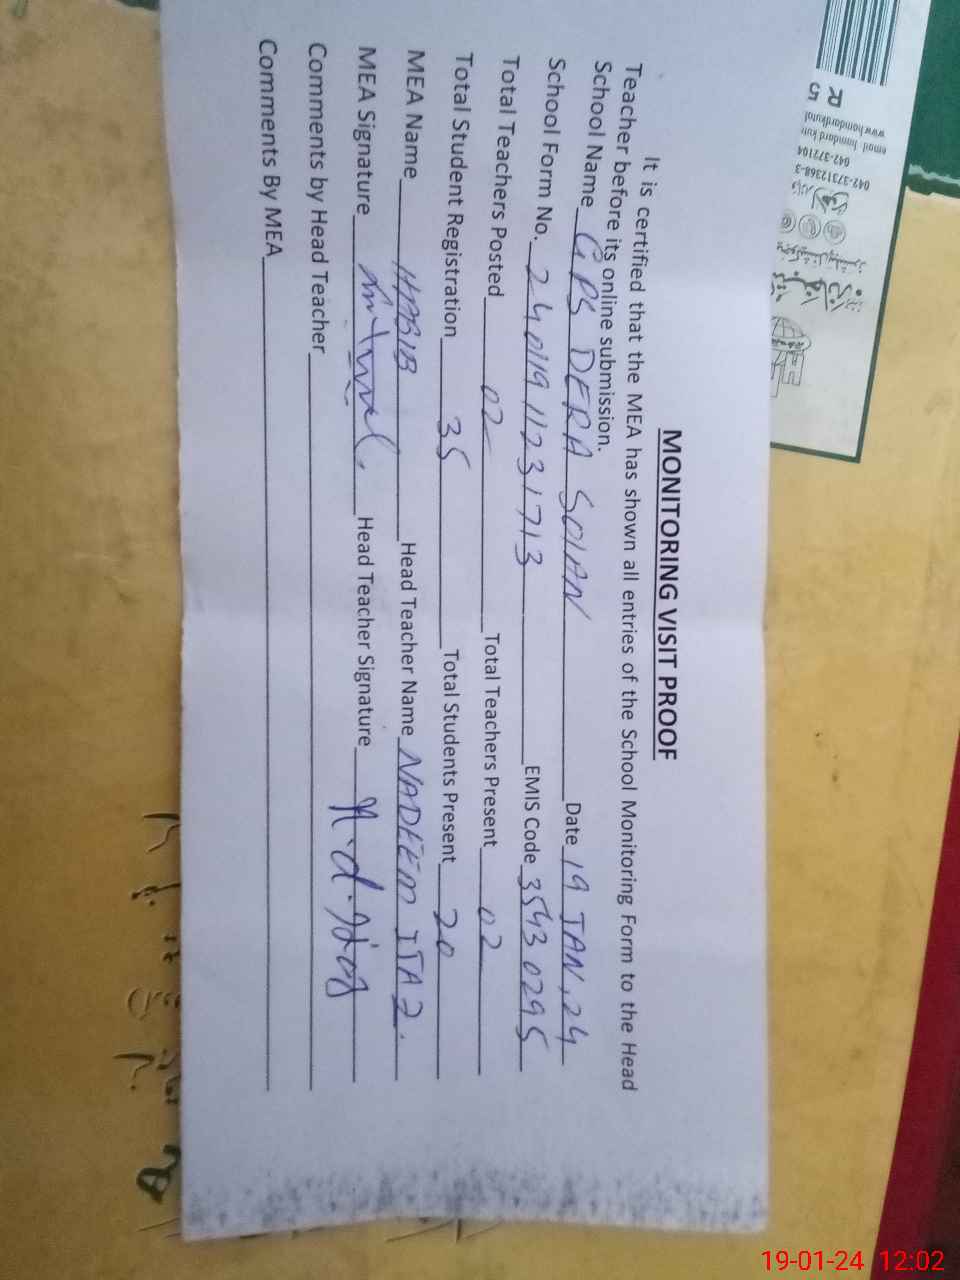 MONITORING VISIT PROOF
It is certified that the MEA has shown all entries of the School Monitoring Form to the Head
Teacher before its online submission.
School Name GPS DERA SOIAN Date 19 JAN, 24
School Form No. 24011911231713 EMIS Code 35430295
Total Teachers Posted 02 Total Teachers Present 02
Total Student Registration 35 Total Students Present 20
MEA Name HABIB Head Teacher Name NADEEM IJAZ.
MEA Signature Head Teacher Signature
Comments by Head Teacher
Comments By MEA
042-37312368-3
042-372104
19-01-24 12:02